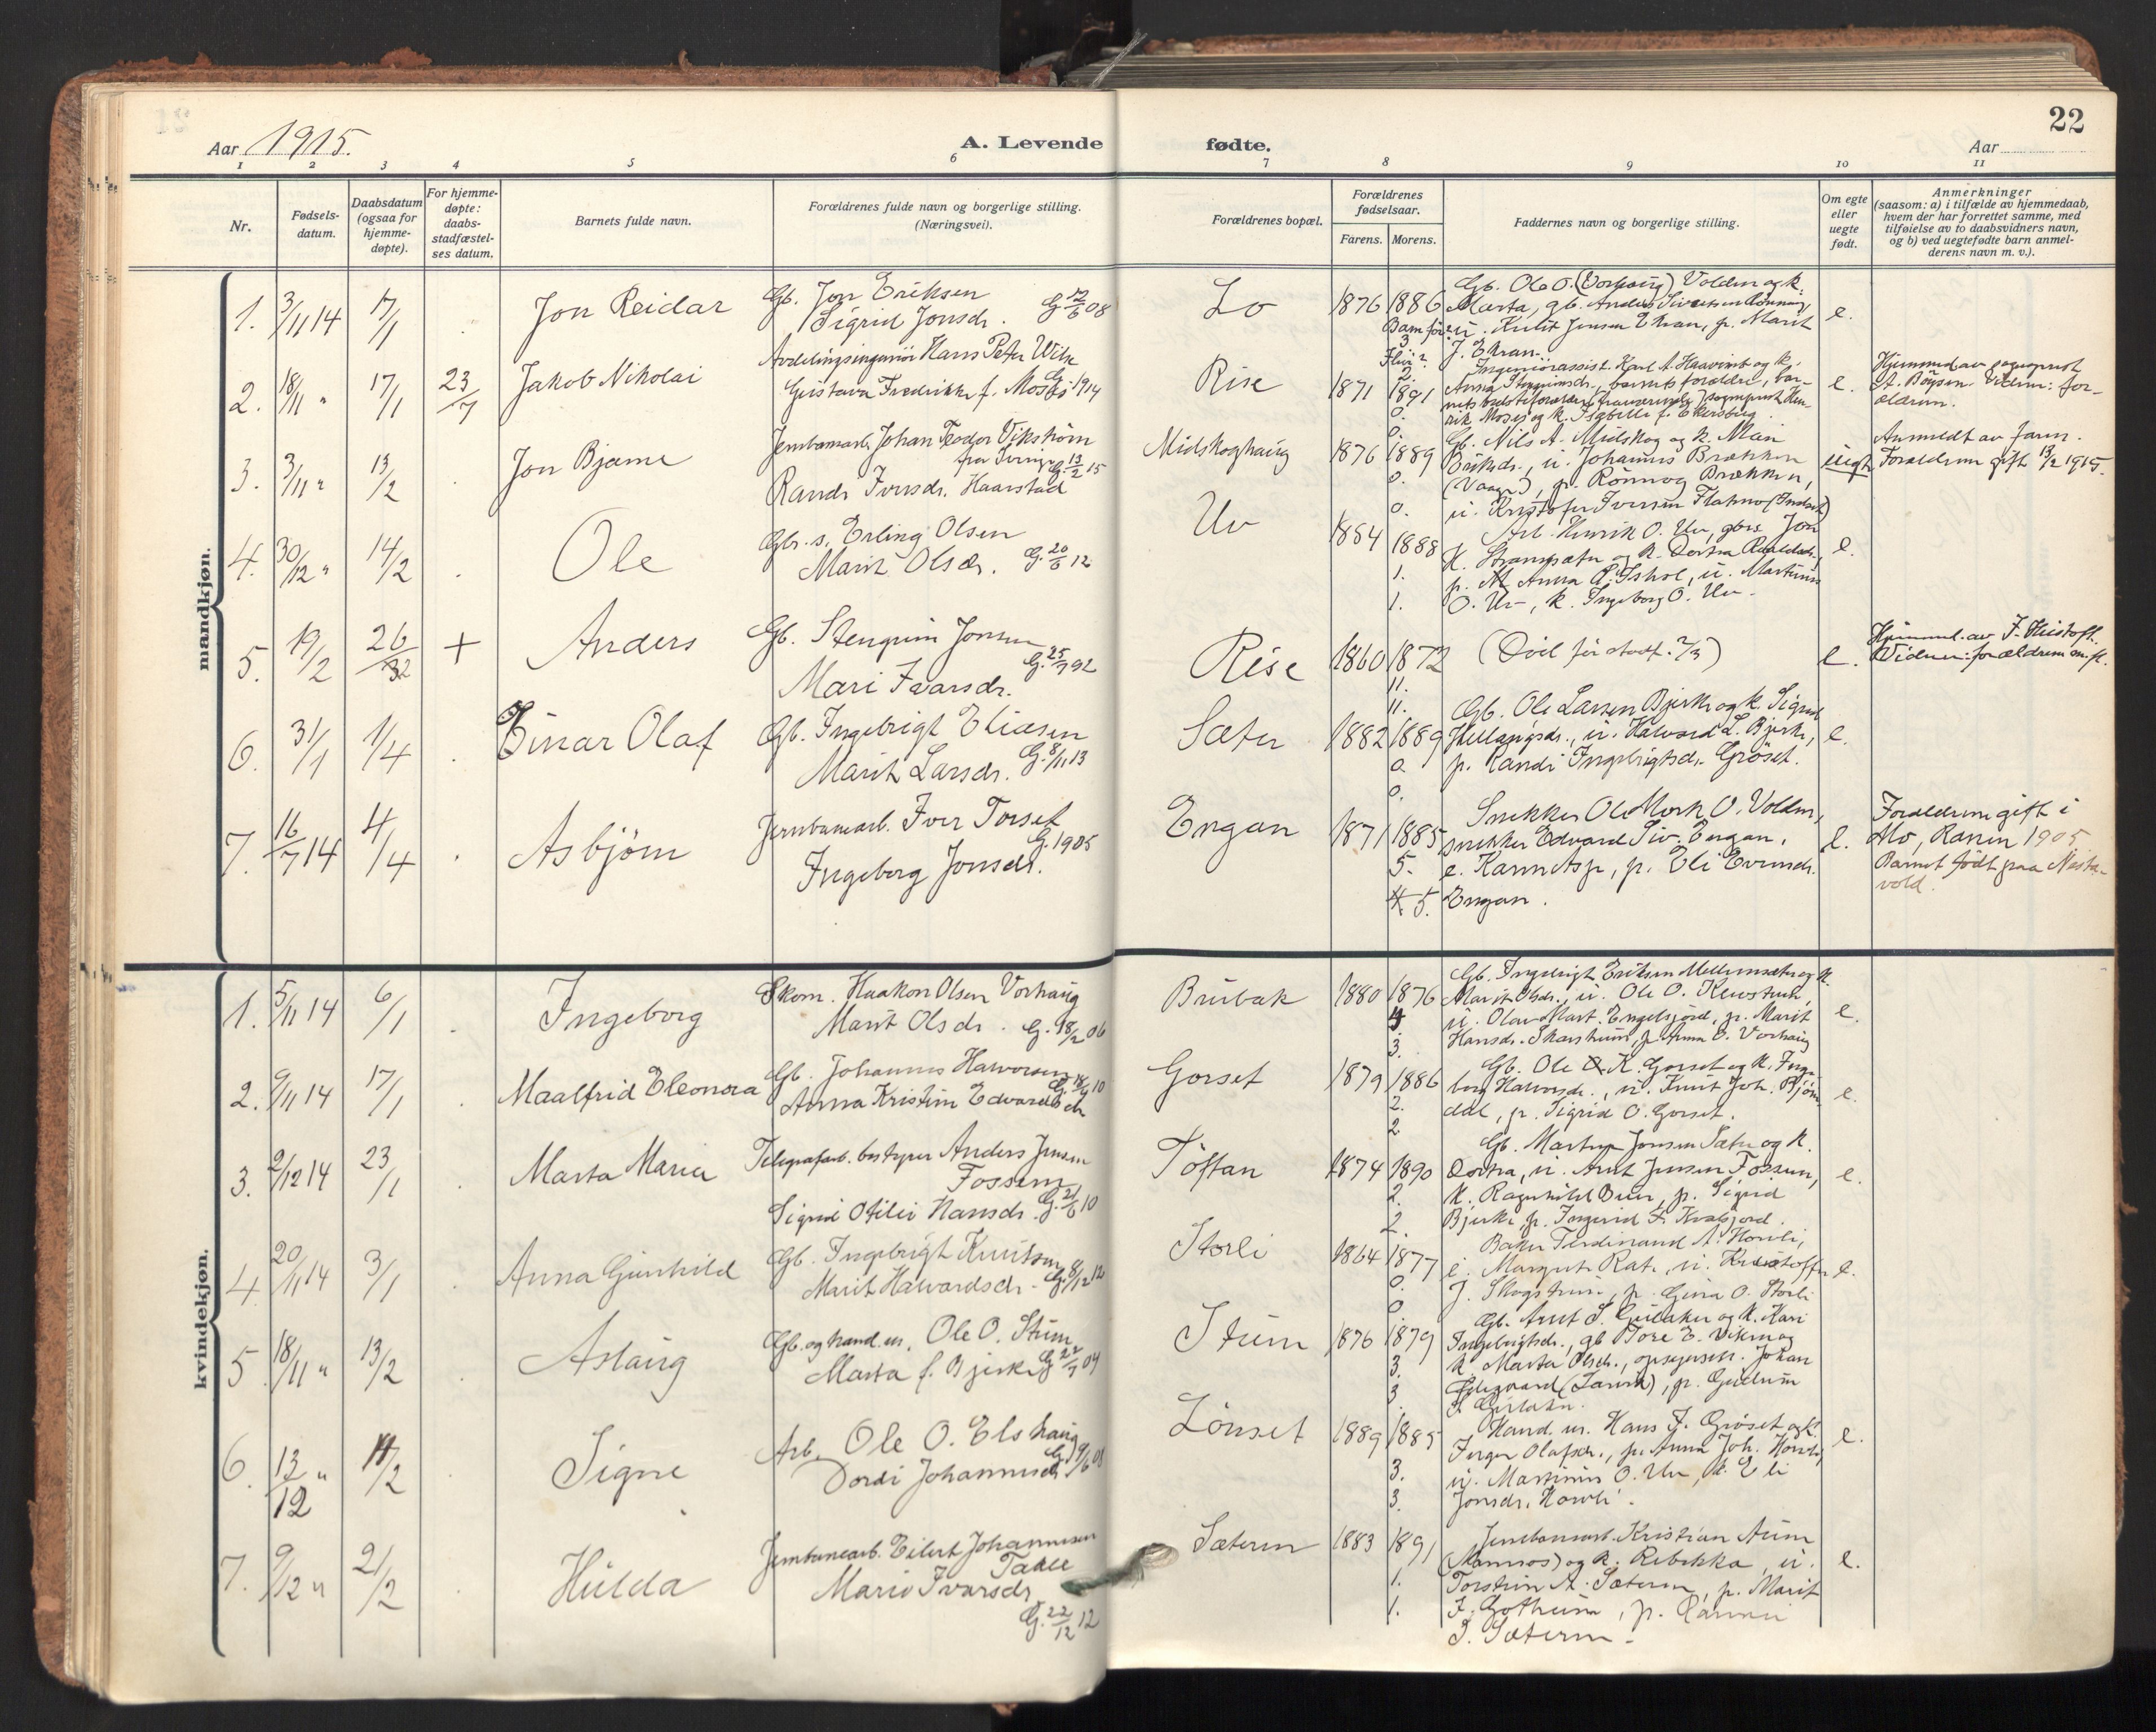 22
Aar 1915.
A. Levende fødte.
Aar
1 2 3 4 5 6 7 8 9 10 11
Nr.
Fødsels-
datum.
Daabsdatum
(ogsaa for
hjemme-
døpte).
For hjemme-
døpte:
daabs-
stadfæstel-
ses datum.
Barnets fulde navn.
Forældrenes fulde navn og borgerlige stilling.
(Næringsvei).
Forældrenes bopæl.
Forældrenes
fødselsaar.
Farens. Morens.
Faddernes navn og borgerlige stilling.
Om egte
eller
uegte
født.
Anmerkninger
(saasom: a) i tilfælde av hjemmedaab,
hvem der har forrettet samme, med
tilføielse av to daabsvidners navn,
og b) ved uegtefødte barn anmel-
derens navn m. v.).
mandkjøn.
1. 3/11 14 17/1 . Jon Reidar
Gb. Jon Eriksen
Sigrid Jonsdr. G. 12/6 08
Lo 1876 1886
Gb. Ole O. (Vorhaug) Volden og k.
Marta, gb. Anders Sivertsen Rønning,
u. Knut Jensen Ekran, p. Marit
J. Ekran.
e.
2. 18/11 " 17/1 23/7 Jakob Nikolai
Avdelingsingeniør Hans Peter Wilse
Gustava Fredrikke f. Moses G. 1914
Rise 1871 1891
0.
0.
Ingeniørassist. Karl A. Haavimb og k.
Anna, barnets forældre, bar-
sogneprest Hen-
rik Moses og k. Isabella f. Ekersberg.
e.
Hjemmed. av sogneprest
A. Bøysen. Vidner: for-
ældrene.
3. 3/11 " 13/2 . Jon Bjarne
Jernbanearb. Johan Teodor Vikstrøm
fra Sverige G. 13/2 15
Randi Iversdr. Haarstad
Midskoghaug 1876 1889
0.
0.
Gb. Nils A. Midskog og k. Mari
Eriksdr., u. Johannes Brækken
(Vaagen), p. Rønnog Brækken,
u. Kristofer Iversen Flatmo (Indset)
uegte
Anmeldt av faren.
Forældrene gift 13/2 1915.
4. 30/12 " 14/2 . Ole
Gbr. s. Erling Olsen
Marit Olsdr. G. 20/6 12
Uv 1854 1888
1.
1.
Arb. Henrik O. Uv, gbr. Jon
K. Strandsæter og k. Dortea
p. Anna P. Ishol, u. Martinus
O. Uv, k. Ingeborg O. Uv.
e.
5. 19/2 26/2 + Anders
Gb. Stengrim Jonsen
Mari Ivarsdr. G. 25/9 92
Rise 1860 1872
11.
11.
(Død før stadf. 2/3)
e.
Hjemmed. av J.
Vidner: forældrene m. fl.
6. 31/1 1/4 . Einar Olaf
Gb. Ingebrigt Eliasen
Marit Larsdr. G. 8/11 13
Sæter 1882 1889
0.
0.
Gb. Ole Larsen Bjerke og k. Sigrid
u. Halvard L. Bjerke,
p. Randi Ingebrigtsdr. Grøset.
e.
7. 16/7 14 4/4 . Asbjørn
Jernbanearb. Iver Torset
G. 1905
Ingeborg Jonsdr.
Engan 1871 1885
5.
5.
Snekker Ole Mork O. Volden,
snekker Edvard Siv. Engan,
e. Karen Asp, p. Eli Evensdr.
Engan.
e.
Forældrene gift i
Mo, Ranen 1905
Barnet født paa Nesta-
vold.
kvindekjøn.
1. 5/11 14 6/1 . Ingeborg
Skom. Haakon Olsen Vorhaug
Marit Olsdr. G. 18/2 06
Brubak 1880 1876
3.
Gb. Ingebrigt Eriksen Mellemsæter og k.
Marit Olsdr., u. Ole O.
u. Olav Mart. Engelsjord, p. Marit
Hansdr. Skarstrum, p. Anna O. Vorhaug
e.
2. 9/11 14 17/1 . Maalfrid Eleonora
Gb. Johannes Halvorsen G. 18/9 10
Anna Kristine Edvardsdr
Gorset 1879 1886
2.
2
Gb. Ole K. Gorset og k. Inge-
borg Halvorsdr., u. Knut Joh. Bjørn-
dal, p. Sigrid O. Gorset.
e.
3. 2/12 14 23/1 . Marta Maria
Telegrafarb. bestyrer Anders Jensen
Fossem
Sigrid Otilie Hansdr. G. 21/6 10
Toftan 1874 1890
2.
2.
Gb. Martinus Jonsen Sæter og k.
Dortea, u. Arnt Jensen Fossum,
k. Ragnhild Buer, p. Sigrid
Bjerke, p. Ingerid F. Kvalsjord.
e.
4. 20/11 14 3/1 . Anna Gunhild
Gb. Ingebrigt Knutsen
Marit Halvardsdr. G. 8/12 12
Storli 1864 1877
0.
0.
Baker Ferdinand A. Horvli,
e. Margrete Rate, u. Kristoffer
J. Skogstrum, p. Gina O. Storli
e.
5. 18/11 " 13/2 . Aslaug
Gb. og hand. m. Ole O. Stuen
Marta f. Bjerke G. 22/7 04
Stuen 1876 1879
3.
3
Gb. Arnt S. Gulaker og k. Kari
Ingebrigtsdr., gb. Tore E. Viken og
k. Marta Olsdr., opsynsm. Johan
Ødegaard (Larvik), p. Gudrun
S. Gulaker.
6. 13/12 " 14/2 . Signe
Arb. Ole O. Elshaug
Dordi Johannesdr G. 9/6 08
Lønset 1889 1885
3.
3.
Hand. m. Hans J. Grøset og k.
Inger Olafsdr., p. Anna Joh. Horvli,
u. Martinus O. Uv, k. Eli
Jonsdr. Horvli.
e.
7. 9/12 " 21/2 . Hulda
Jernbanearb. Eilert Johannesen
Talle
Marie Ivarsdr
G. 22/12 12
Sæteren 1883 1891
1.
1.
Jernbanearb. Kristian Aune
(Namsos) og k. Rebekka, u.
Torstein A. Sæteren, p. Marit
J. Gotheim, p.
J. Sæteren.
e.